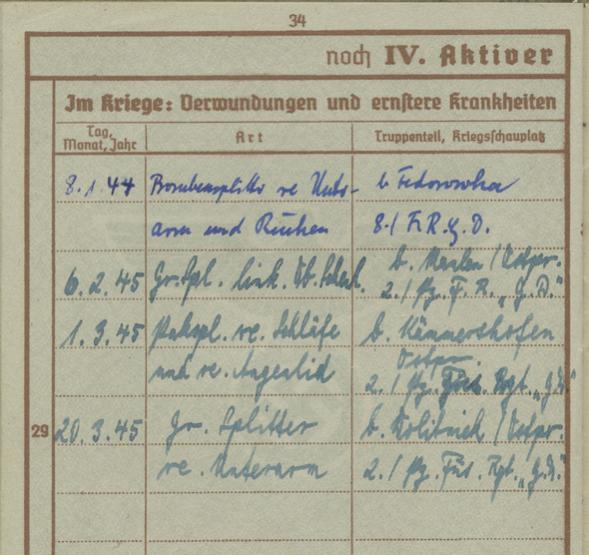 34
noch IV. Aktiver
Im Kriege: Verwundungen und ernstere Krankheiten
Tag, Monat, Jahr Art Truppenteil, Kriegsschauplatz
8.1.44 Bombensplitter re Unter- b Fedorowka
arm und Rücken 8./ F.R.G.D.
6.2.45 Gr. Spl. link. Ob. Schenk. b. /Ostpr.
2./ Pz. F. R. „G.D."
1.3.45 Pakspl. re. Schläfe b. Kämmershofen
Ostpr.
und re. Augenlid 2./ Pz. Füs. Rgt. „G.D."
29 20.3.45 Gr. Splitter b. /Ostpr.
re. Unterarm 2./ Pz. Füs. Rgt. „G.D."